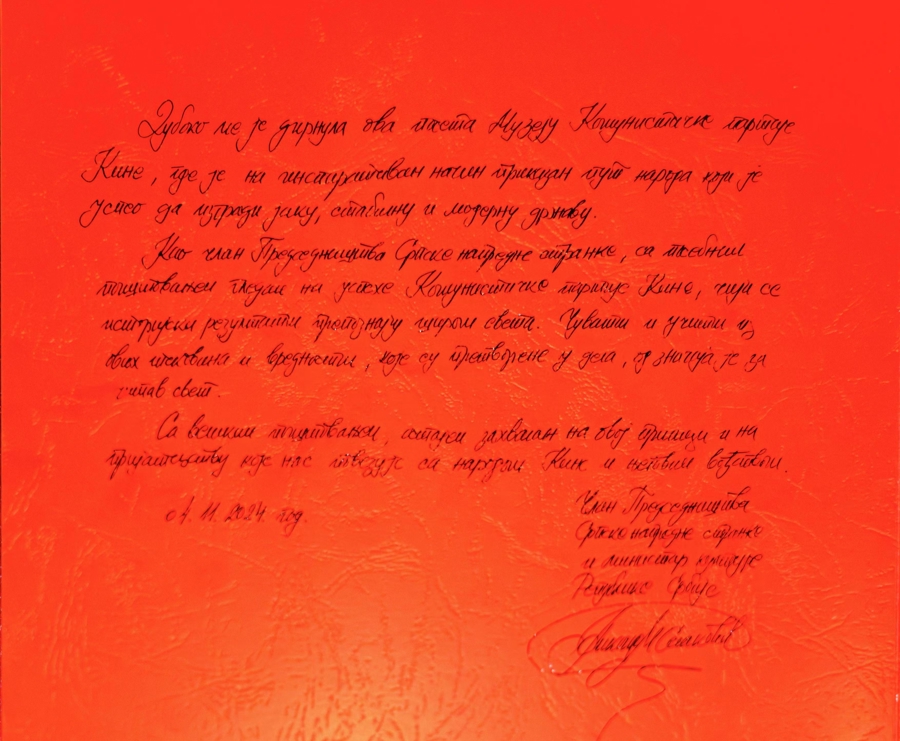 Дубоко ме је дирнула ова посета Музеју Комунистичке партије
Кине, где је на инспиративан начин приказан пут народа који је
успео да изгради јаку, стабилну и модерну државу.
Као члан Председништва Српске напредне странке, са посебним
поштовањем гледам на успехе Комунистичке партије Кине, чији се
историјски резултати препознају широм света. Чувати и учити из
ових и вредности, које су претворене у дела, од значаја је за
читав свет.
Са великим поштовањем, остајем захвалан на овој прилици и на
пријатељству које нас повезује са народом Кине и њеним вођством.
04.11.2024. год.
Члан Председништва
Српске напредне странке
и министар културе
Републике Србије